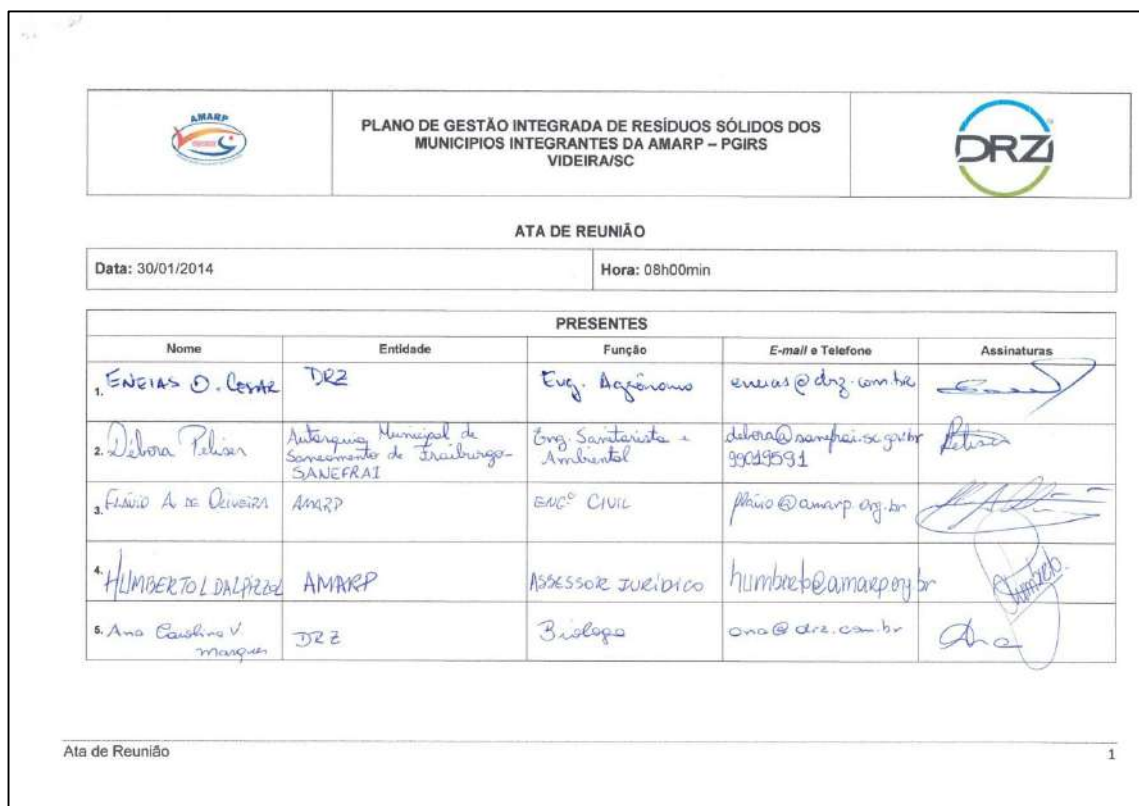 AMARP
PLANO DE GESTÃO INTEGRADA DE RESÍDUOS SÓLIDOS DOS
MUNICIPIOS INTEGRANTES DA AMARP – PGIRS
VIDEIRA/SC
DRZ
ATA DE REUNIÃO
Data: 30/01/2014
Hora: 08h00min
PRESENTES
Nome Entidade Função E-mail e Telefone Assinaturas
1. ENEIAS O. CESAR DRZ Eng. Agrônomo eneias@drz.com.br
2. Débora Peliser Autarquia Municipal de Saneamento de Fraiburgo- SANEFRAI Eng. Sanitarista e Ambiental debora@sanefrai.sc.gov.br 99019591 Peliser
3. FLÁVIO A. DE OLIVEIRA AMARP ENGº CIVIL flávio@amarp.org.br
4. HUMBERTO L DALPIZZOL AMARP ASSESSOR JURÍDICO humberto@amarp.org.br Humberto.
5. Ana Carolina V. Marques DRZ Bióloga ana@drz.com.br Ana
Ata de Reunião
1